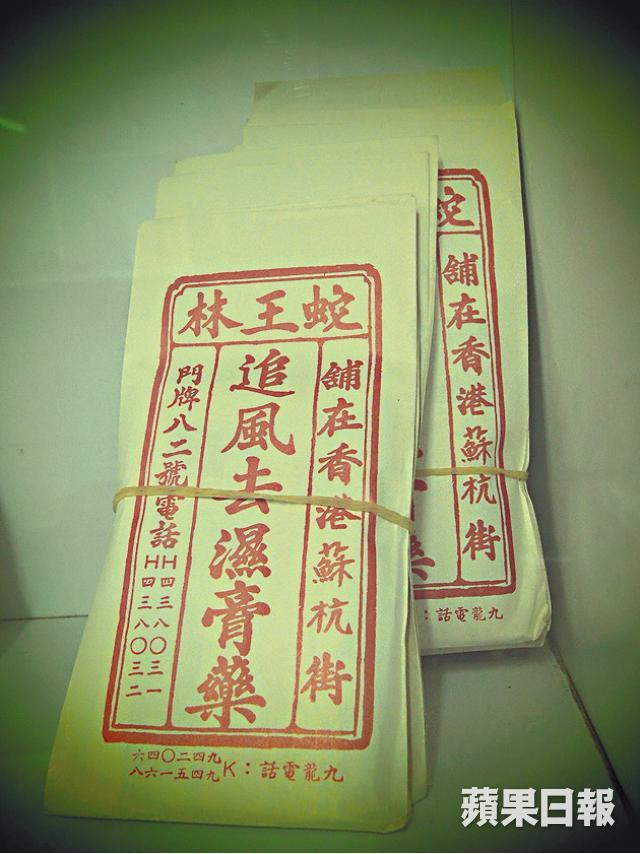 蛇王林
舖在香港蘇杭街
追風去濕膏藥
門牌八二號電話
H四三八〇三一
H四三八〇三二
九龍電話：K
九四二〇四六
九四五一六八
蛇
舖在香港蘇杭街
藥
九龍電話：
蘋果日報